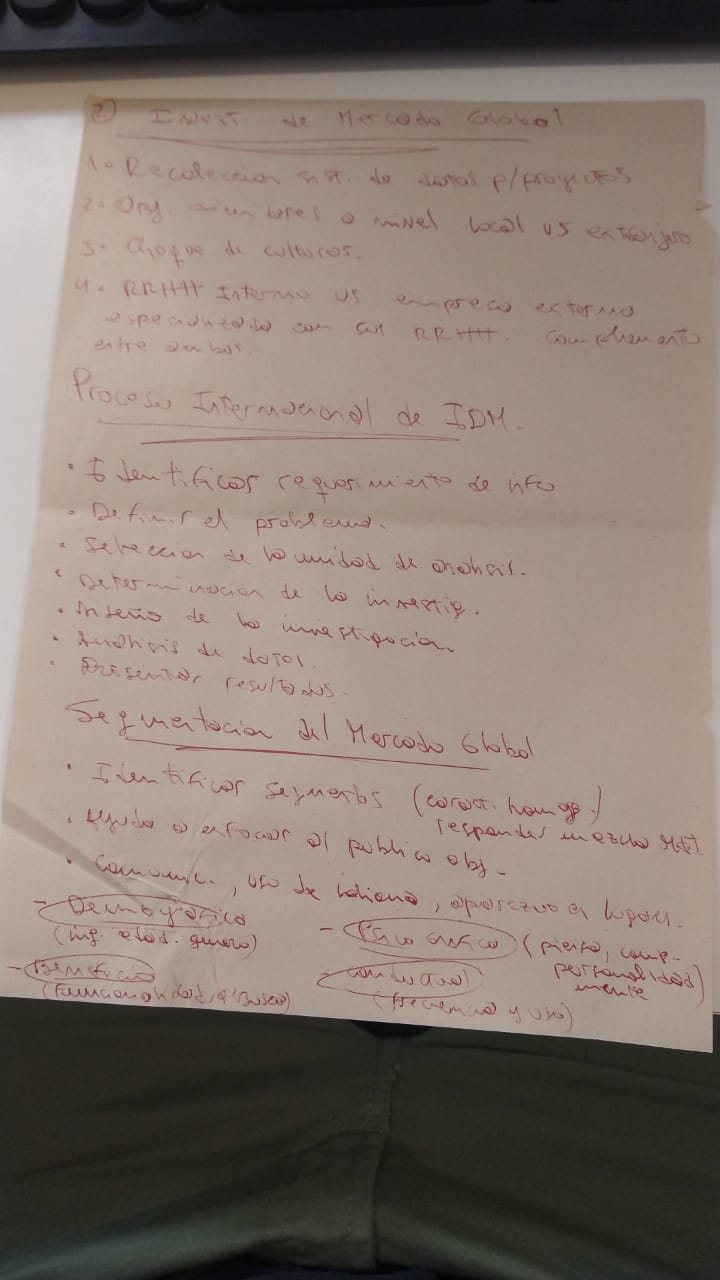 2) Invest. de Mercado Global
1. Recoleccion sist. de datos p/proyectos
2. Obj. a nivel local vs extranjero
3. Choque de culturas.
4. RRHH Interno vs empresa externa
especializada con sus RRHH. Complemento
entre ambos.
Proceso Internacional de IDM.
• Identificar requerimiento de info
• Definir el problema.
• Seleccion de la unidad de analisis.
• Determinacion de la investig.
• Diseño de la investigacion.
• Analisis de datos.
• Presentar resultados.
Segmentacion del Mercado Global
• Identificar segmentos (caract. homog.)
responder mezcla MKT.
• Ayuda a enfocar al publico obj.
• Comunic., uso de idioma, en lugares.
- Demografico
(ing. edad. genero)
- Psicografico (piensa, comp.
personalidad)
mente
- Beneficio
(Funcionalidad, q' busca)
- Conductual
(frecuencia y uso)